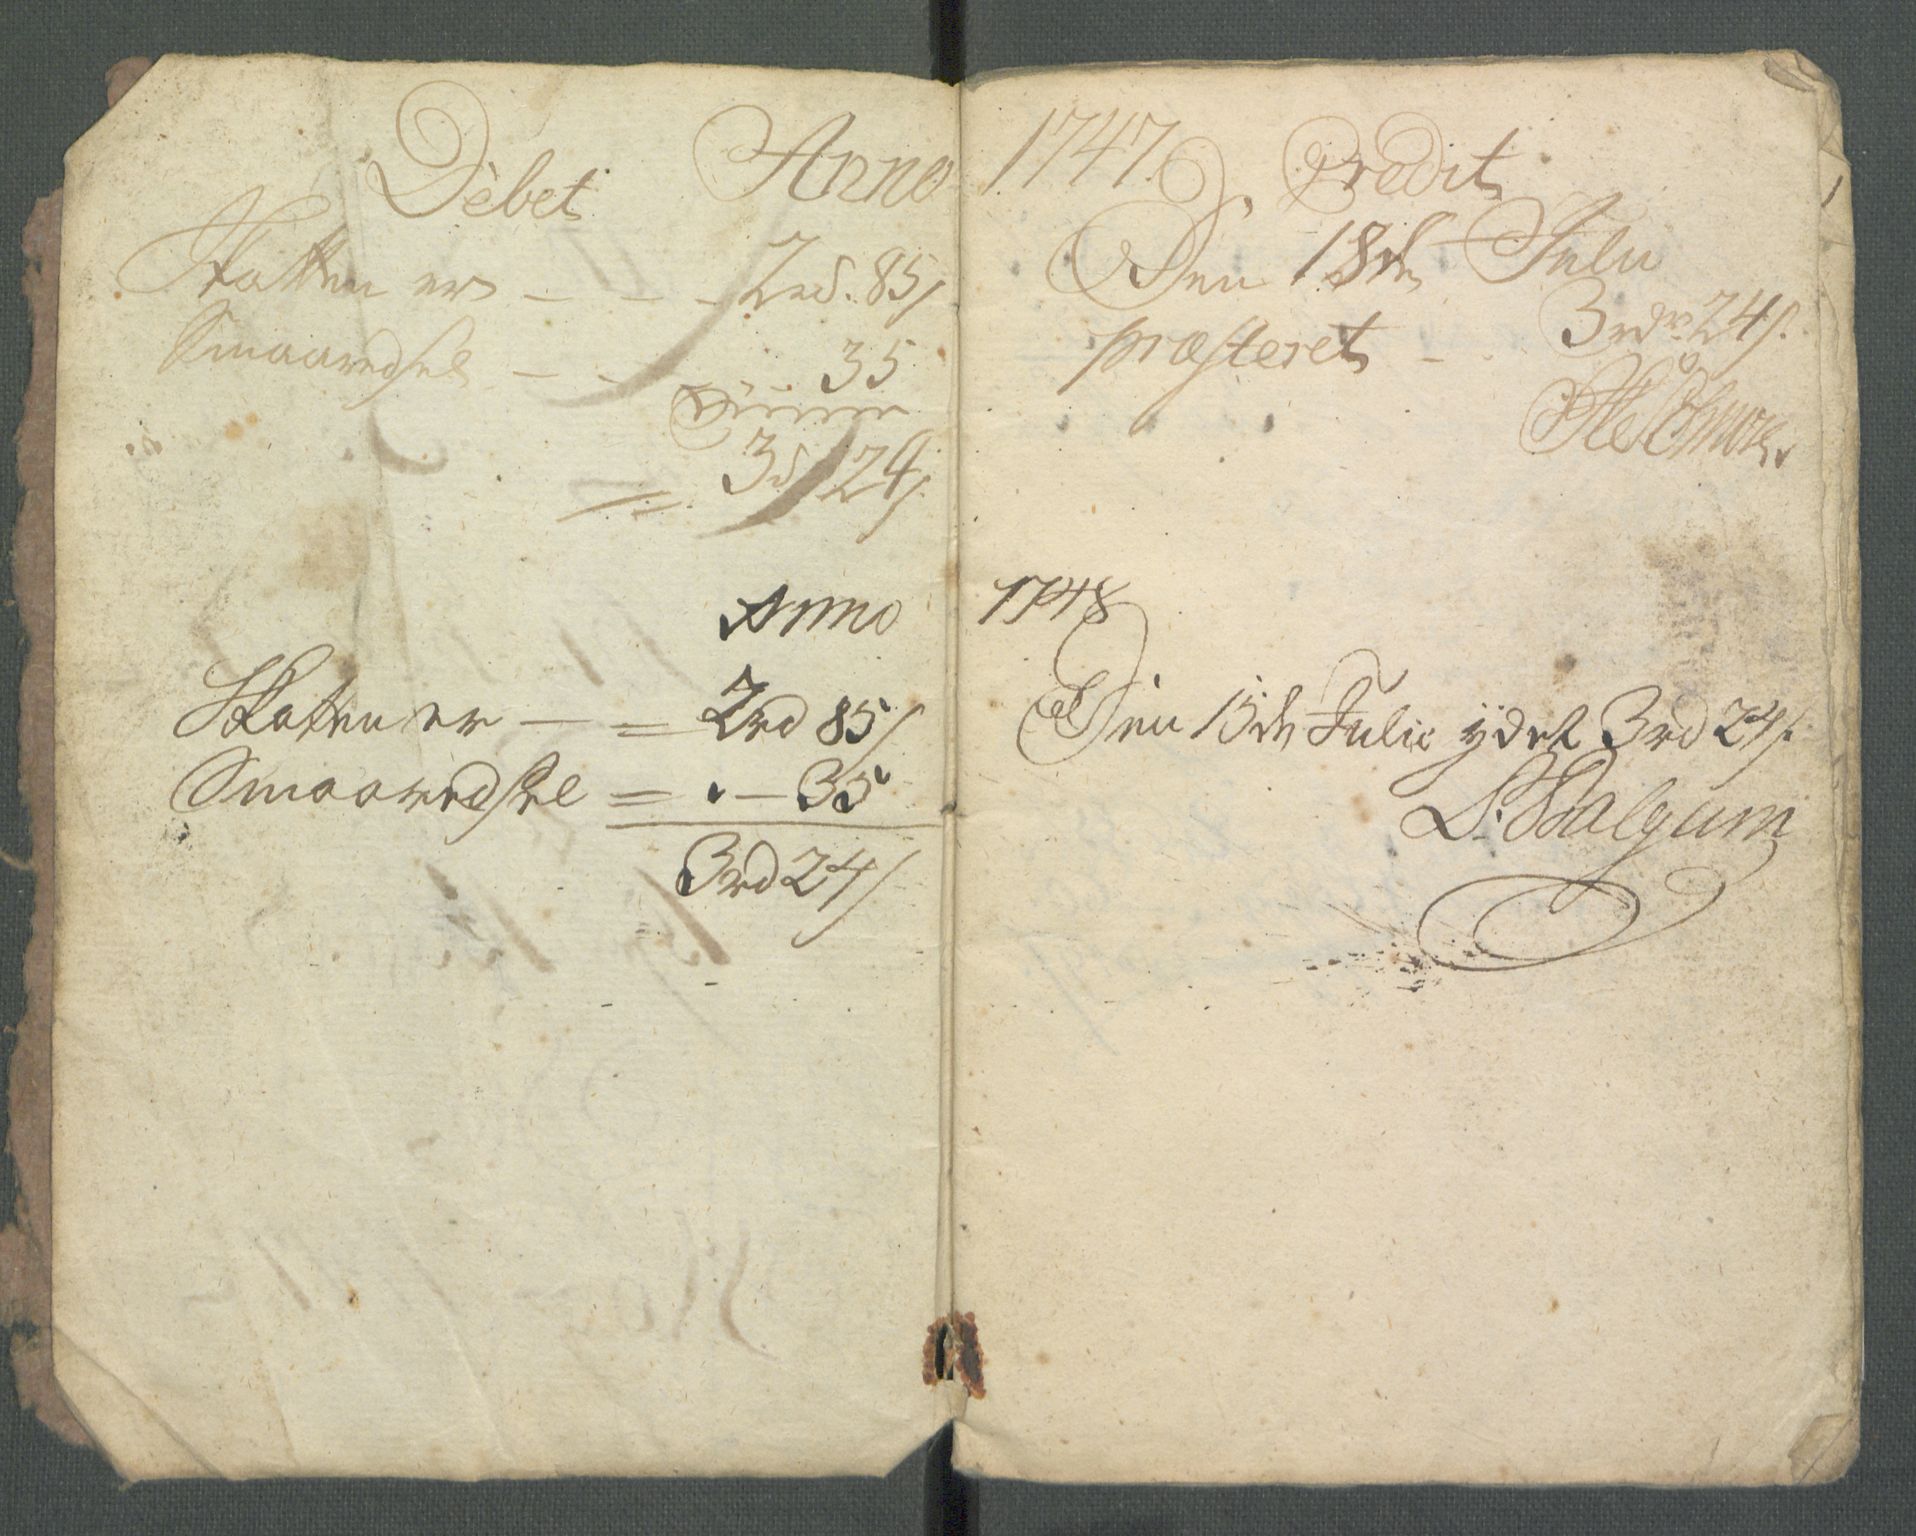 Debet Anno 1747 Credit
Skatten er — — — 2rd. 85ſ
Smaaredsel — — 35
Summa
3d 24ſ
Den 18de Julii
præsteret — 3rdr 24ſ.
Anno 1748
Skatten er — = 2rd 85ſ
Smaaredsel = . — 35
3rd 24ſ
Den 15de Julii ydet 3rd 24ſ.
L. Walgum